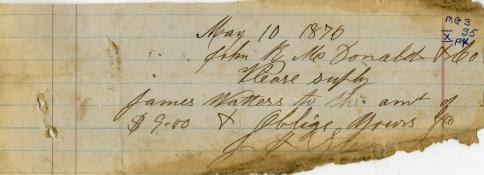 M G 3
X 35
May 10 1870
John R. McDonald & Co
Please suply
James Watters to the amt of
$9.00 & Oblige Yours &c